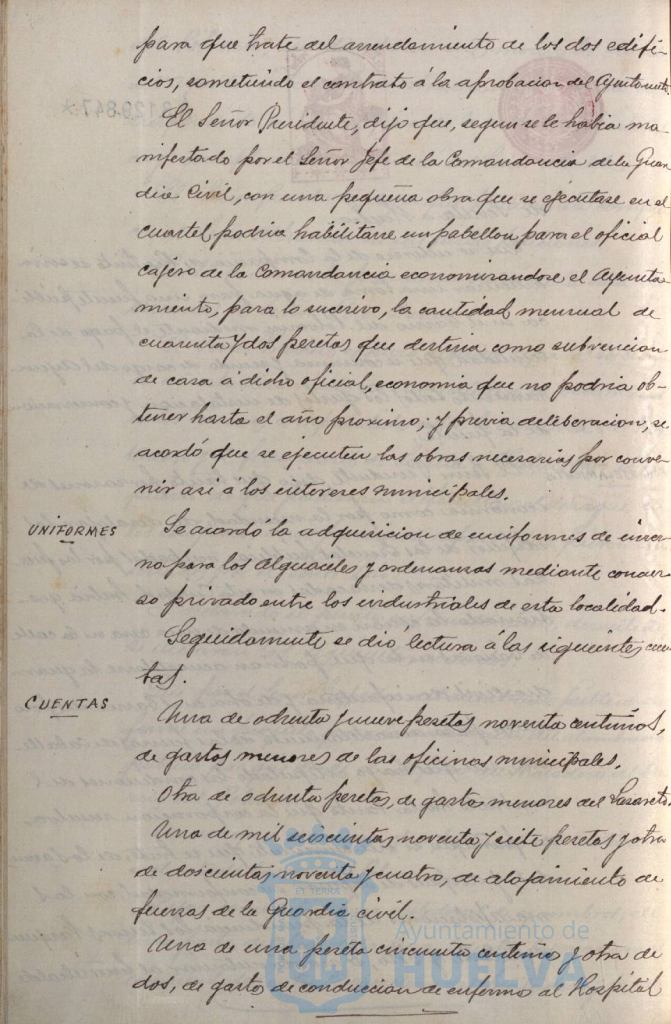 para que trate del arrendamiento de los dos edifi-
cios, sometiendo el contrato á la aprobacion del Ayuntamto.
El Señor Presidente, dijo que, segun se le habia ma-
nifestado por el Señor Jefe de la Comandancia de la Guar
dia Civil, con una pequeña obra que se ejecutase en el
cuartel podria habilitarse un pabellon para el oficial
cajero de la Comandancia economizandose el Ayunta-
miento, para lo sucesivo, la cantidad mensual de
cuarenta y dos pesetas que destina como subvencion
de casa á dicho oficial, economia que no podria ob-
tener hasta el año proximo; y previa deliberacion, se
acordó que se ejecuten las obras necesarias por conve-
nir asi á los intereses municipales.
UNIFORMES
Se acordó la adquisicion de uniformes de invier
no para los alguaciles y ordenanzas mediante concur
so privado entre los industriales de esta localidad.
Seguidamente se dió lectura á las siguientes cuen
tas.
CUENTAS
Una de ochenta y nueve pesetas noventa centimos,
de gastos menores de las oficinas municipales.
Otra de ochenta pesetas, de gastos menores del Lazareto.
Una de mil seiscientas noventa y siete pesetas y otra
de doscientas noventa y cuatro, de alojamiento de
fuerzas de la Guardia civil.
Una de una peseta cincuenta centimos y otra de
dos, de gastos de conduccion de enfermos al Hospital
Ayuntamiento de
HUELVA